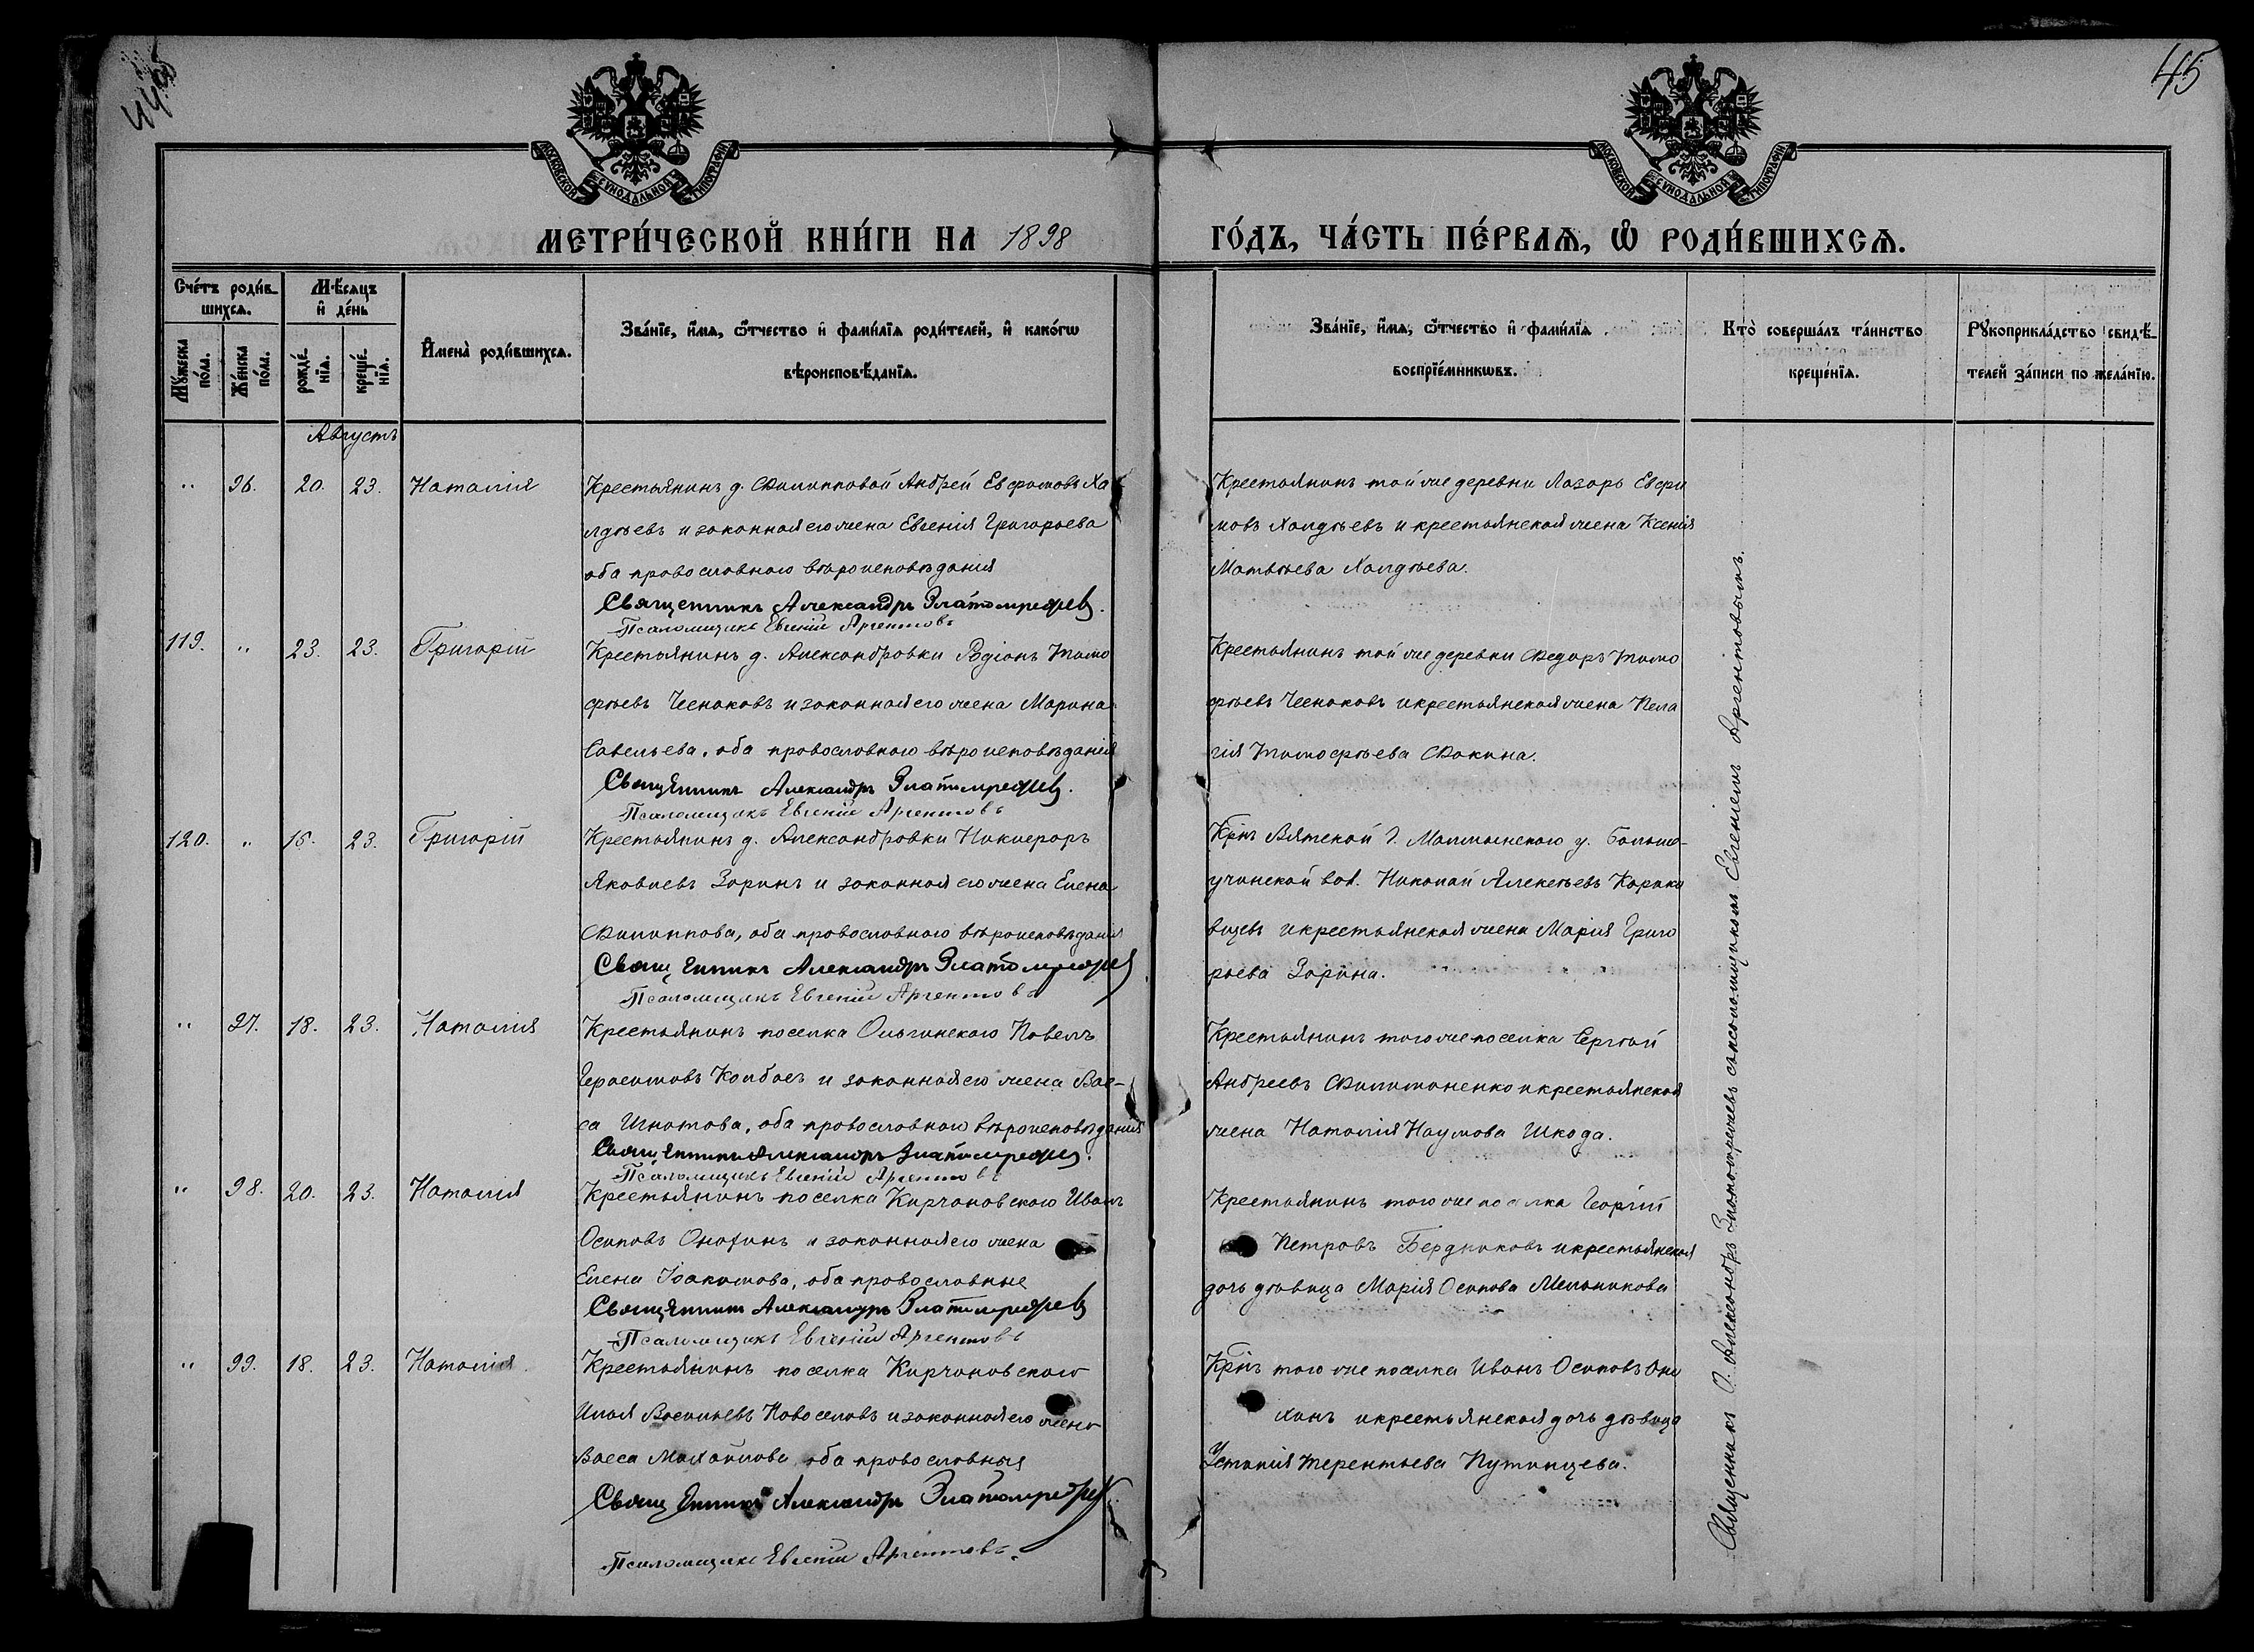 45
МОСКОВСКОЙ СѴНОДАЛЬНОЙ ТИПОГРАФІИ
МОСКОВСКОЙ СѴНОДАЛЬНОЙ ТИПОГРАФІИ
МЕТРИ́ЧЕСКОЙ КНИ́ГИ НА 1898
ГО́ДЪ, ЧА́СТЬ ПЕ́РВАѦ, Ѡ҆ РОДИ́ВШИХСѦ.
Сче́тъ роди́в-
шихсѧ.
Мꙋ́жеска по́ла.
Же́нска по́ла.
Мѣ́сѧцъ
и҆ де́нь
рожде́нїѧ.
креще́нїѧ.
И҆мена̀ роди́вшихсѧ.
Зва́нїе, и҆́мѧ, ѻ҆́тчество и҆ фами́лїѧ роди́телей, и҆ како́гѡ
вѣроисповѣ́данїѧ.
Зва́нїе, и҆́мѧ, ѻ҆́тчество и҆ фами́лїѧ
воспрїе́мникѡвъ.
Кто̀ соверша́лъ та́инство
креще́нїѧ.
Рꙋкоприкла́дство свидѣ́-
телей за́писи по жела́нїю.
Августъ
" 96. 20. 23. Наталія
Крестьянинъ д. Филипповой Андрей Евфимовъ Ха
лдѣевъ и законная его жена Евгенія Григорьева
оба православнаго вѣроисповѣданія
Священникъ Александръ Златомрежев.
Псаломщикъ Евгеній Аргентовъ
Крестьянинъ той же деревни Лазарь Евфи
мовъ Халдѣевъ и крестьянская жена Ксенія
Матвѣева Халдѣева.
119. " 23. 23. Григорій
Крестьянинъ д. Александровки Родіонъ Тимо
фѣевъ Чесноковъ и законная его жена Марина
Савельева, оба православнаго вѣроисповѣданія
Священникъ Александръ Златомрежев.
Псаломщикъ Евгеній Аргентовъ
Крестьянинъ той же деревни Федоръ Тимо
фѣевъ Чесноковъ и крестьянская жена Пела
гія Тимофѣева Фокина.
120. " 15. 23. Григорій
Крестьянинъ д. Александровки Никифоръ
Яковлевъ Зоринъ и законная его жена Елена
Филиппова, оба православнаго вѣроисповѣданія
Священникъ Александръ Златомрежев
Псаломщикъ Евгеній Аргентовъ
Крнъ Вятской г. Малмыжскаго у. Больше-
учинской вол. Николай Алексѣевъ
и крестьянская жена Марія Григо
рьева Зорина.
" 97. 18. 23. Наталія
Крестьянинъ поселка Ольгинскаго Павелъ
Герасимовъ и законная его жена Вас-
са Игнатова, оба православнаго вѣроисповѣданія
Священникъ Александръ Златомрежев.
Псаломщикъ Евгеній Аргентовъ
Крестьянинъ того же поселка Сергѣй
Андреевъ Филимоненко и крестьянская
жена Наталія Наумова Шкода.
" 98. 20. 23. Наталія
Крестьянинъ поселка Кирчановскаго Иванъ
Осиповъ и законная его жена
Елена Іоакимова, оба православные
Священникъ Александръ Златомрежев
Псаломщикъ Евгеній Аргентовъ
Крестьянинъ того же поселка Георгій
Петровъ Бердниковъ и крестьянская
дочь дѣвица Марія Осипова Мельникова
" 99. 18. 23. Наталія
Крестьянинъ поселка Кирчановскаго
Илья Васильевъ Новоселовъ и законная его жена
Васса Михайлова, оба православныя
Священникъ Александръ Златомрежев
Псаломщикъ Евгеній Аргентовъ.
Крнъ того же поселка Иванъ Осиповъ
и крестьянская дочь дѣвица
Устинія Терентьева Путинцева.
Священникъ О. Александръ Златомрежевъ съ псаломщикомъ Евгеніемъ Аргентовымъ.